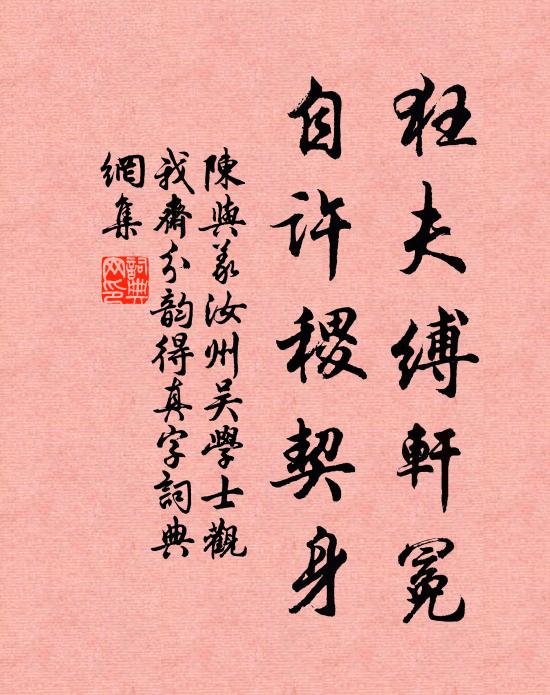 狂夫縛軒冕
自許稷契身
陳與義汝州吳學士觀
我齋分韵得真字詞典
網集
詞典網印